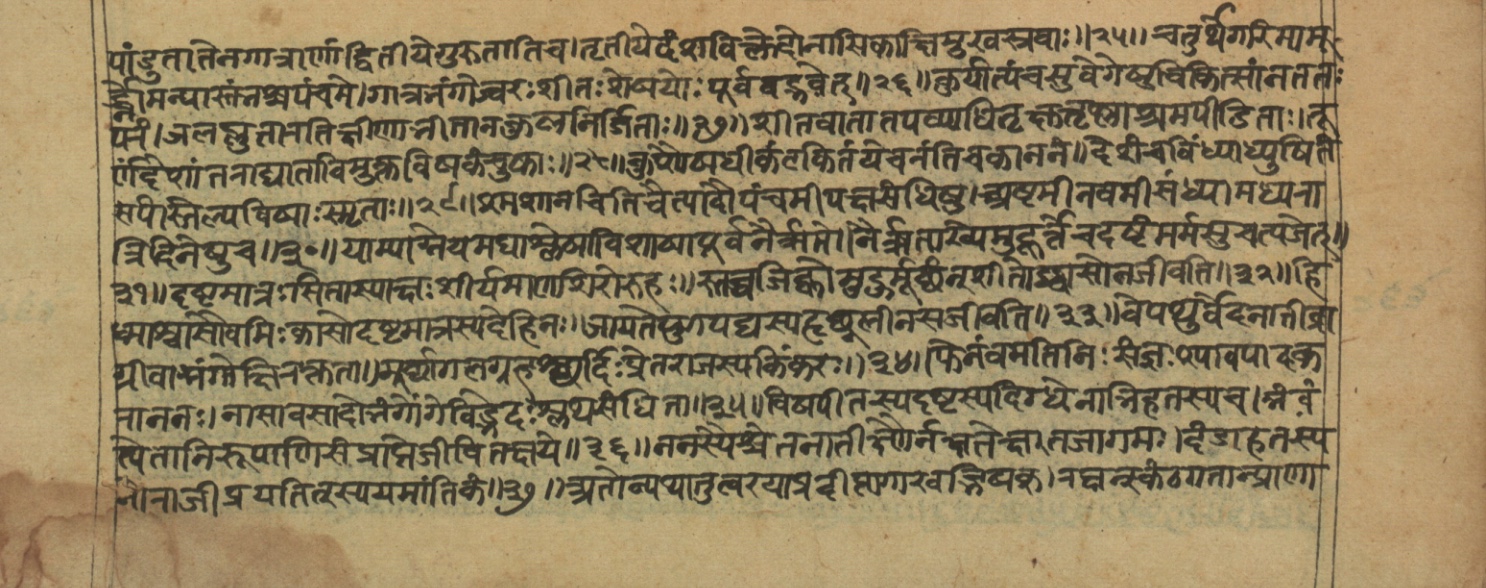 पांडुता तेन गात्राणां द्वितीये गुरुताति च। तृतीये दंशविक्लेदो नासिकाक्षिमुखस्त्रवाः॥२५॥ चतुर्थे गरिमा मू
र्द्ध्नो मन्यास्तंनश्च पंचमे। गात्रनंगो ज्वरः शीतः शेषयोः पूर्ववद्भवेत्॥२६॥ कुर्यात्पंचसु वेगेषु चिकित्सां न ततः
परं। जलप्लुता रतिक्षीणा नीता नकुलनिर्जिताः॥२७॥ शीतवातातपव्याधितृक्तृष्णाश्रमपीडिताः। तू
र्णं देशांतरा द्याता विमुक्तविषकंचुकाः॥२८॥ कुशौषधीकंटकितं ये चरंति च काननं॥ देशं च विंध्याध्युषितं
सर्पास्तेल्पविषाः स्मृताः॥२९॥ श्मशानचितिचैत्यादौ पंचमीपक्षसंधिषु। अष्टमीनवमीसंध्यामध्यरा
त्रिदिनेषु च॥३०॥ याम्याग्नेयमघाश्लेषाविशाखापूर्वनैर्ऋते। नैर्ऋताख्यमुहूर्त्ते च दष्टं मर्मसु च त्यजेत्॥
३१॥ दष्टमात्रः सितास्याक्षः शीर्यमाणशिरोरुहः॥ स्तब्धजिह्वो मुहुर्मूर्छन् शीतोच्छ्वासो न जीवति॥३२॥ हि
ध्मा श्वासो वमिः कासो दष्टमात्रस्य देहिनः। जायते युगपद्यस्य हृच्छूली न स जीवति॥३३॥ वेपथुर्वेदना तीव्रा
ग्रीवाभंगोक्षिरक्तता॥ मूर्छागलग्रहश्छर्दिः प्रेतराजस्य किंकरः॥३४॥ फेनं वमति निःसंज्ञः श्यावपादक
राननः। नासावसादो नंगोंगे विड्भेदः श्लथसंधिता॥३५॥ विषपीतस्य दष्टस्य दिग्धेनाभिहतस्य च। भवं
त्येतानि रूपाणि संप्राप्ते जीवितक्षये॥३६॥ न नस्यैश्चेतना तीक्ष्णैर्न क्षतेक्षतजागमः। दंडाहतस्य
नो राजी प्रयाति तस्य यमांतिकं॥३७॥ अतोन्यथा तु त्वरया प्रदीप्तागारवद्भिषक्। रक्षन्कंठगतान्प्राणा